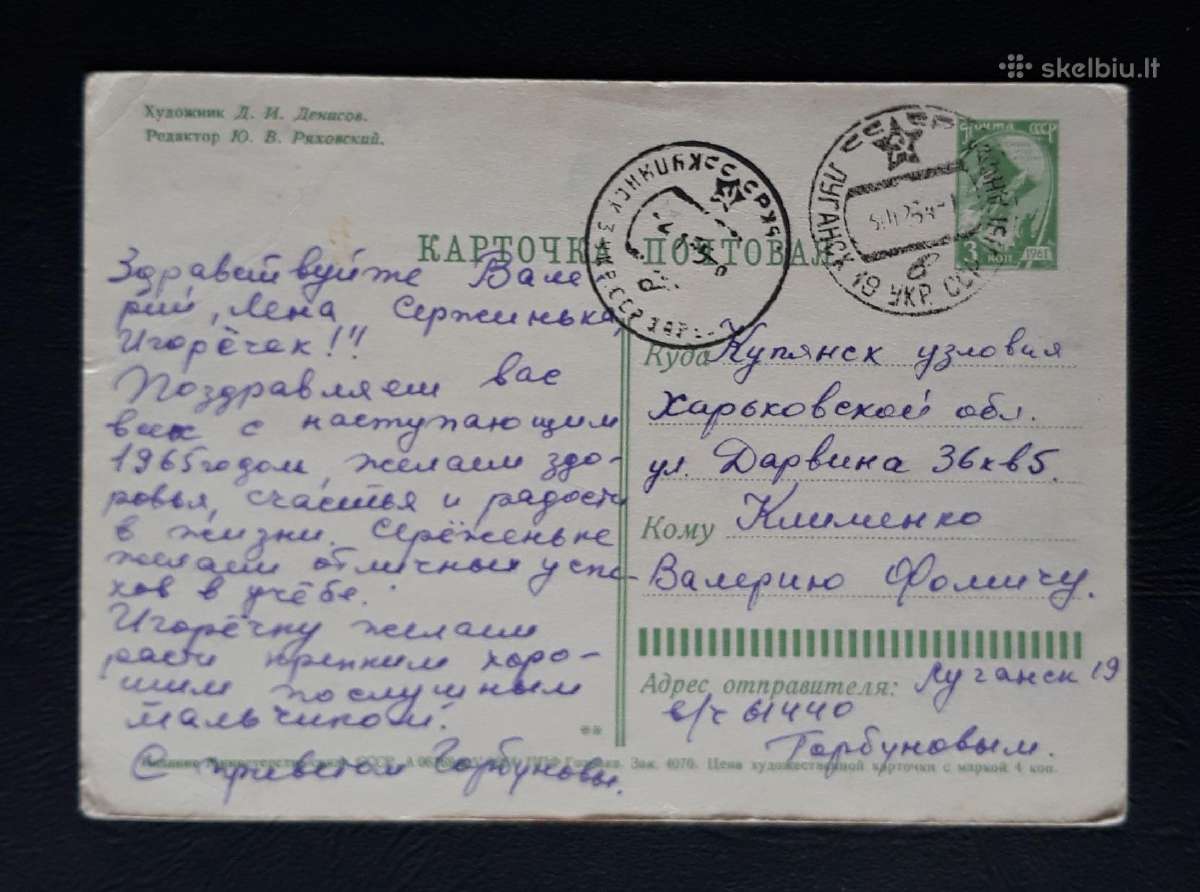 skelbiu.lt
Художник Д. И. Денисов.
Редактор Ю. В. Ряховский.
ПОЧТА СССР
3 коп
1961
ЛУГАНСК 19 УКР. ССР
КУПЯНСК
КАРТОЧКА ПОЧТОВАЯ
Здравствуйте Вале
рий, Лена Сержинька,
Игорёчек!!!
Поздравляем вас
всех с наступающим
1965 годом, желаем здо-
ровья, счастья и радости
в жизни. Серёженьке
желаем отличных успе-
хов в учёбе.
Игорёчку желаем
расти крепким хоро-
шим послушным
мальчиком.
С приветом Горбуновы.
Куда Купянск узловия
Харьковской обл.
ул. Дарвина 36 кв 5.
Кому Клименко
Валерию Фомичу.
Адрес отправителя: Луганск 19
в/ч 61440
Горбуновым.
Издание Министерства связи СССР. Зак. 4070. Цена художественной карточки с маркой 4 коп.